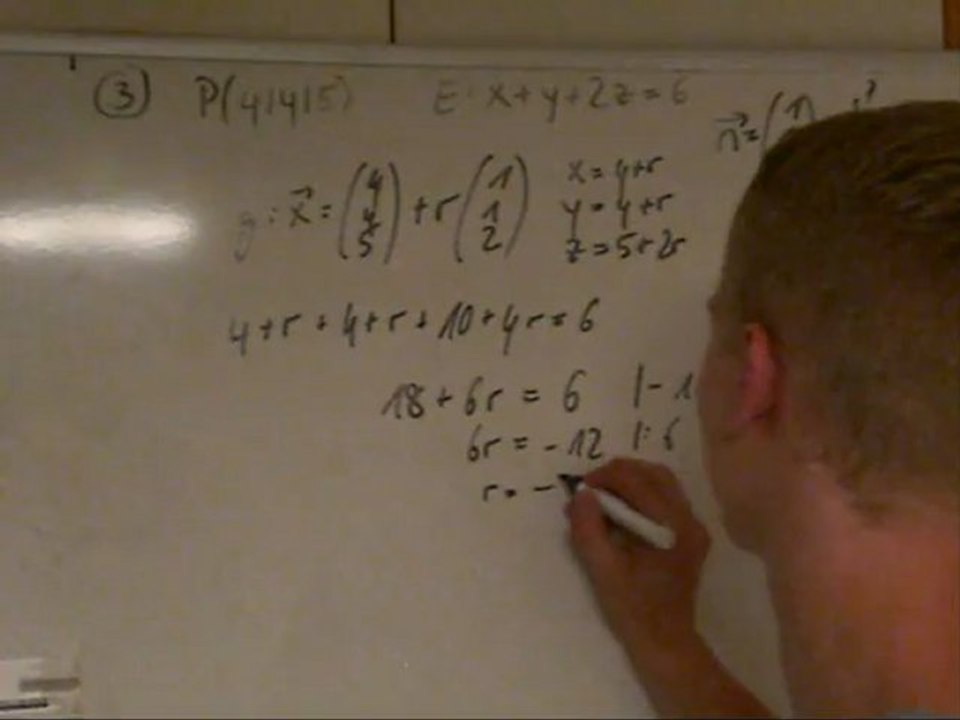 ③ P(4|4|5) E: x+y+2z=6 n⃗=(1
g: x⃗=(4 4 5)+r(1 1 2) x=4+r
y=4+r
z=5+2r
4+r+4+r+10+4r=6
18+6r=6 |-1
6r=-12 |:6
r=-